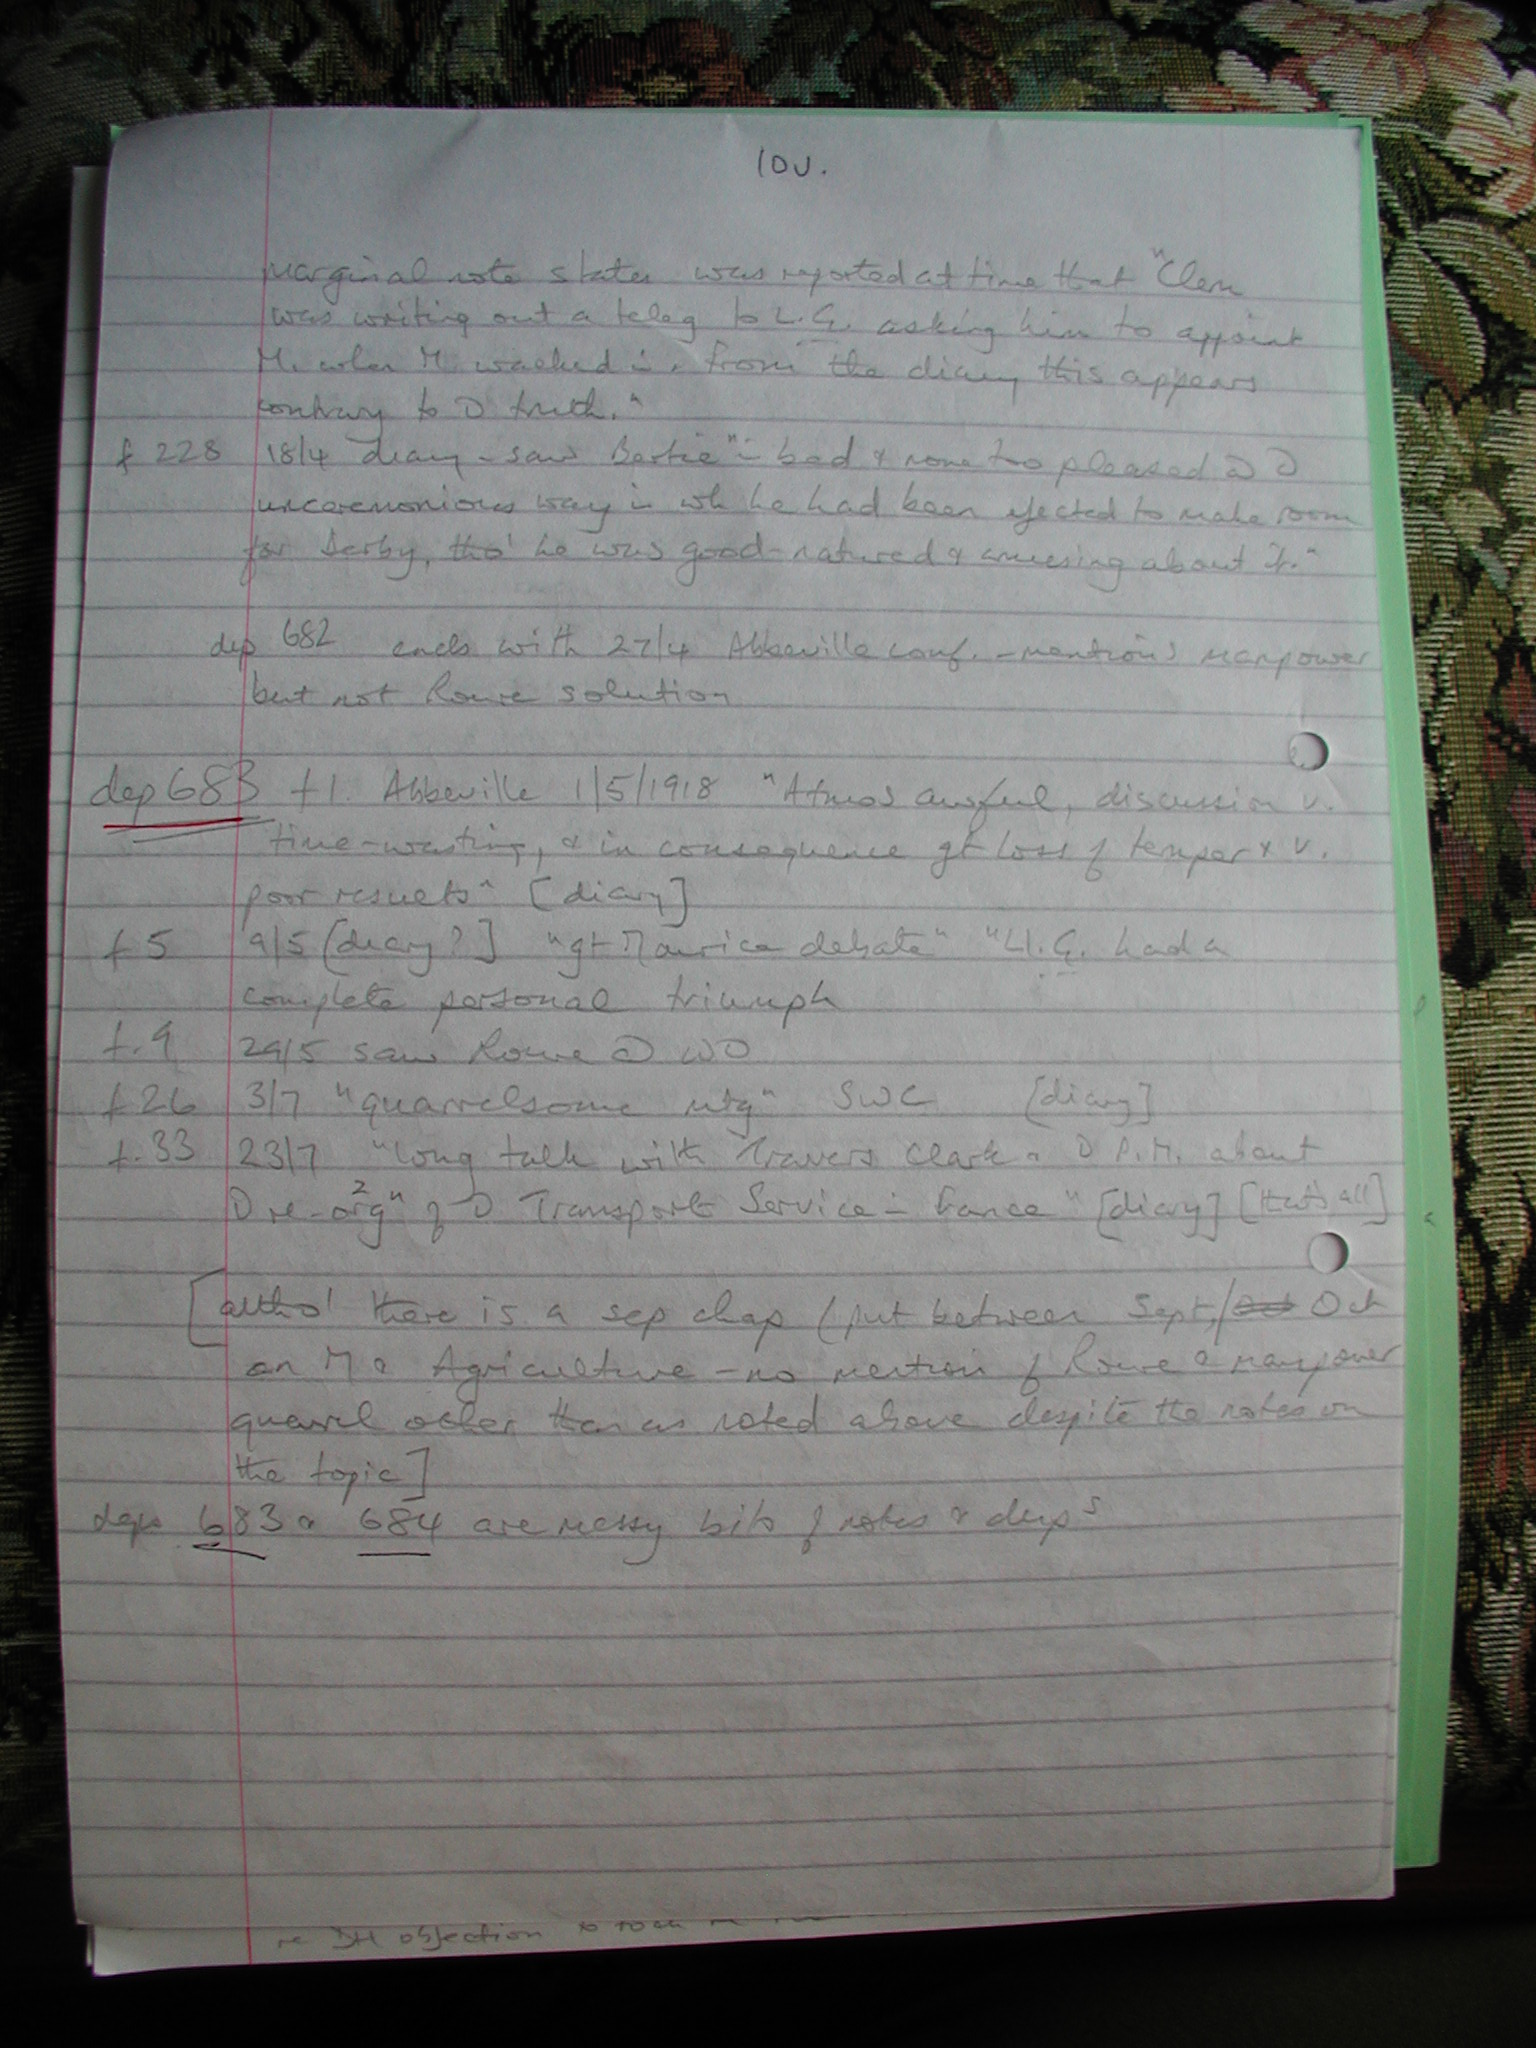 10v.
Marginal note states was reported at time that "Clem
was writing out a teleg to L.G. asking him to appoint
M. when M. walked in. from the diary this appears
contrary to D truth."
f 228 18/4 diary - saw Bertie "in bed & none too pleased @ D
unceremonious way in wh he had been ejected to make room
for Derby, tho' he was good-natured & amusing about it."
dep 682 ends with 27/4 Abbeville conf. - mentions manpower
but not Rowe solution
dep 683 f1. Abbeville 1/5/1918 "Atmos awful, discussion v.
time-wasting, & in consequence gt loss of temper & v.
poor results" [diary]
f 5 9/5 [diary?] "gt Maurice debate" "Ll.G. had a
complete personal triumph
f.9 29/5 saw Rowe @ WO
f 26 3/7 "quarrelsome mtg" SWC [diary]
f.33 23/7 "long talk with Travers Clark & D P.M. about
D re-orgn of D Transport Service in France" [diary] [that's all]
[altho' there is a sep chap (put between Sept,/ Oct
on M & Agriculture - no mention of Rowe & manpower
quarrel other than as noted above despite the notes on
the topic]
deps 683 & 684 are messy bits of notes & dups
re DH objection to